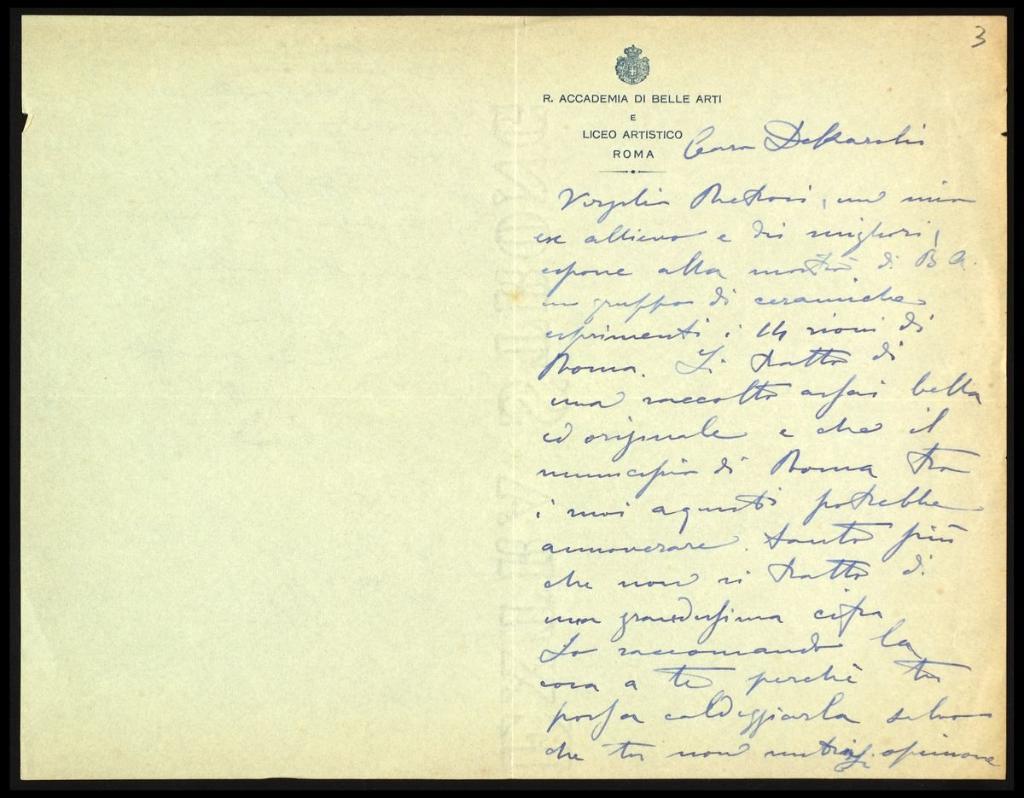 3
R. ACCADEMIA DI BELLE ARTI
E
LICEO ARTISTICO
ROMA
Caro
Virgilio Retrosi, un mio
ex allievo e dei migliori,
espone alla mostra di B A.
un gruppo di ceramiche
esprimenti i 14 rioni di
Roma. Si tratta di
una raccolta assai bella
ed originale e che il
municipio di Roma tra
i suoi aquisti potrebbe
annoverare. Tanto più
che non si tratta di
una grandissima cifra
Io raccomando la
cosa a te perchè tu
possa caldeggiarla salvo
che tu non opinione